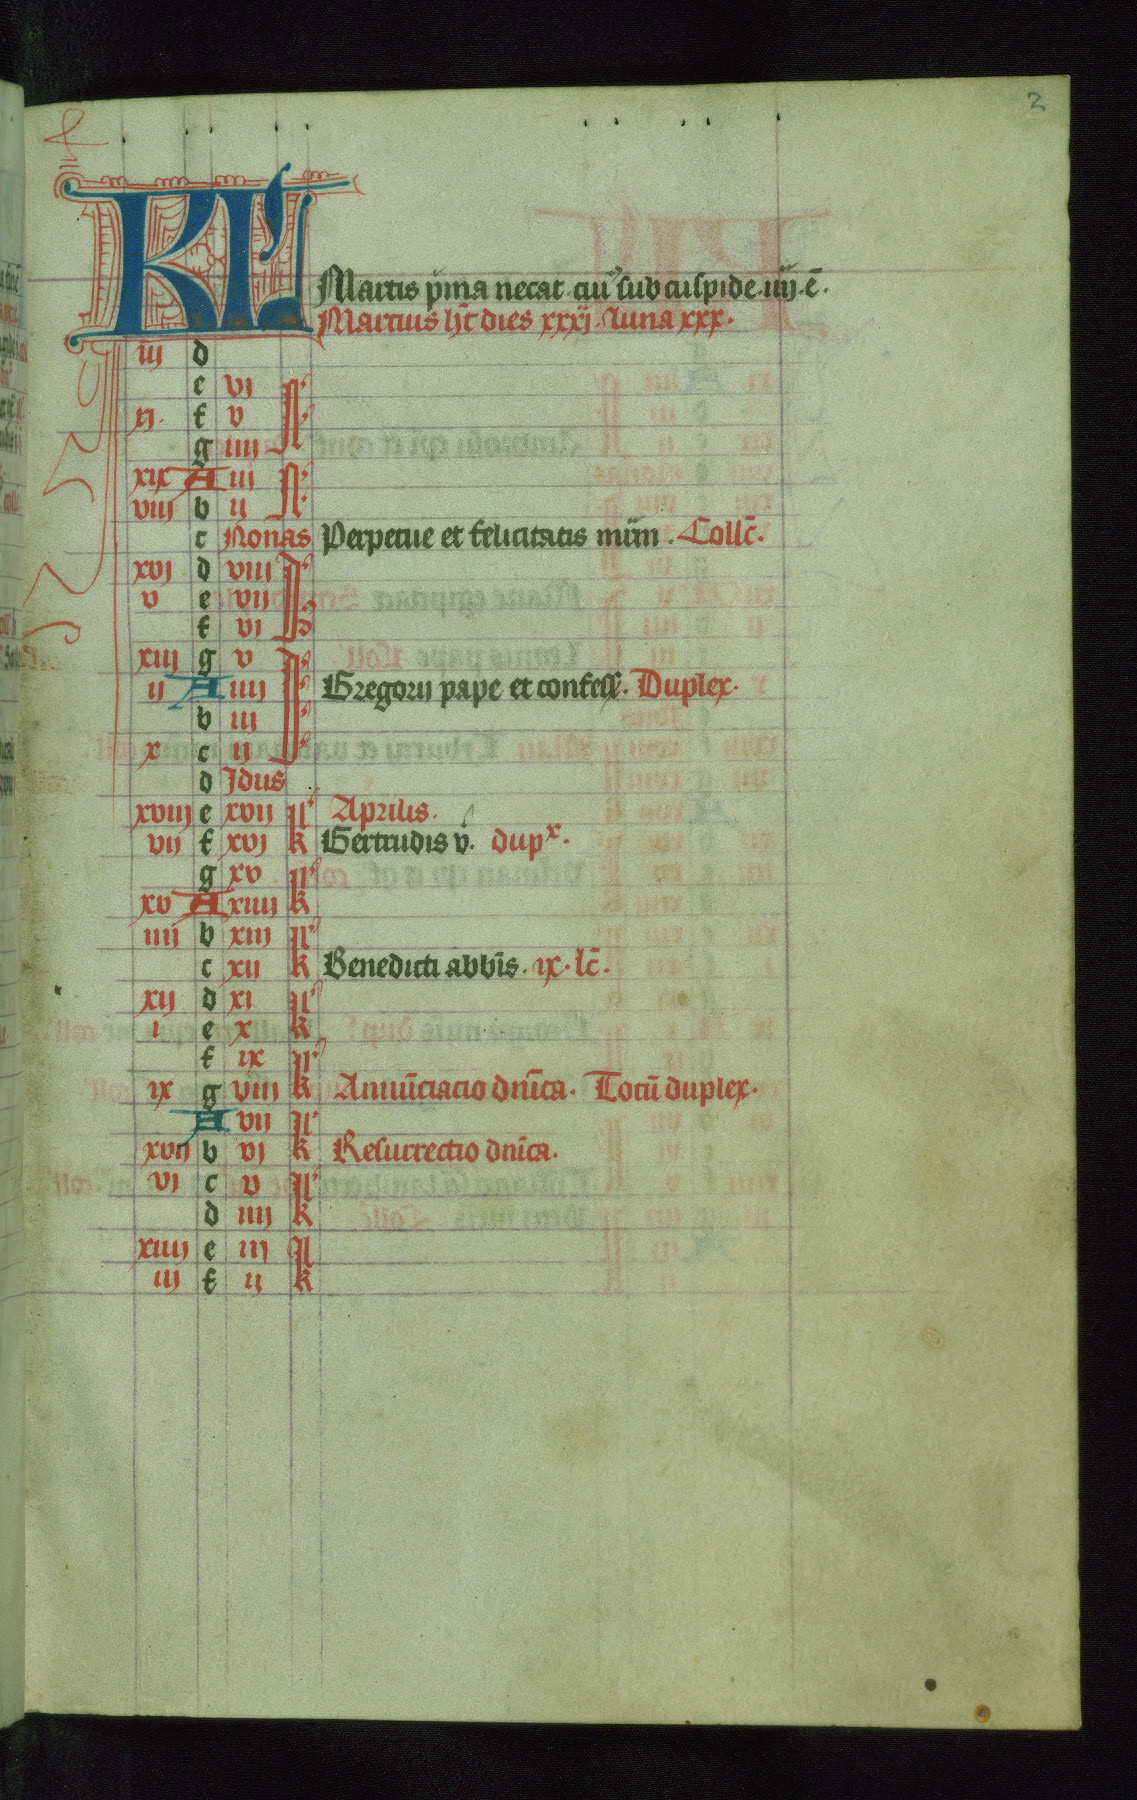 2
KL
Martis p'ma necat cui' sub cuspide iiij ē.
Marcius h't dies xxxj. luna xxx.
iij d
e vj N
xj. f v
g iiij
xix A iij N
viij b ij
c Nonas Perpetue et felicitatis mr̄m. Collc̄.
xvj d viij Id
v e vij
f vj
xiij g v Id
ij A iiij Gregorii pape et confess. Duplex.
b iij
x c ij
d Idus
xviij e xvij kl' Aprilis.
vij f xvj k Gertrudis v̄. dupx.
g xv kl'
xv A xiiij k
iiij b xiij kl'
c xij k Benedicti abb̄is. ix. lc̄.
xij d xi kl'
i e x k
f ix kl'
ix g viij k Annūciacio dn̄ica. Totū duplex.
A vij kl'
xvij b vj k Resurrectio dn̄ica.
vi c v kl'
d iiij k
xiiij e iij kl
iij f ij k